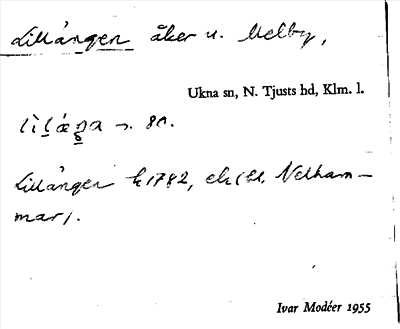 Lillängen åker u. Melby,
Ukna sn, N. Tjusts hd, Klm. l.
80.
Lillängen k 1782, ek (bl. Nelham-
mar).
Ivar Modéer 1955